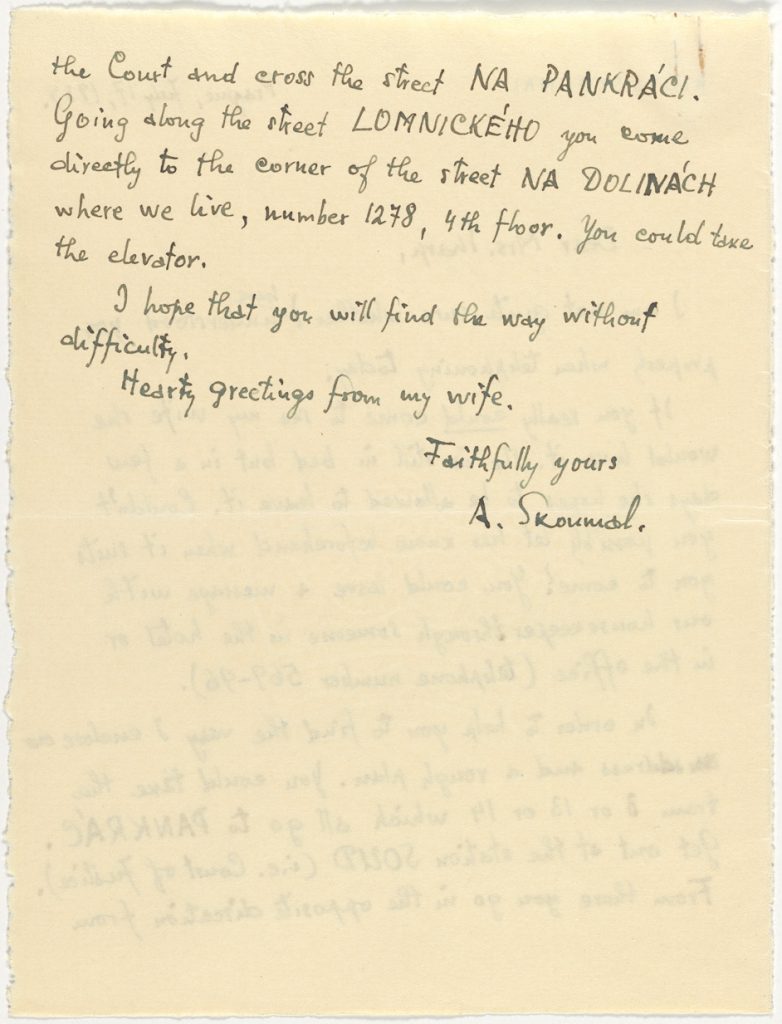 the Court and cross the street NA PANKRÁCI.
Going along the street LOMNICKÉHO you come
directly to the corner of the street NA DOLINÁCH
where we live, number 1278, 4th floor. You could take
the elevator.
I hope that you will find the way without
difficulty.
Hearty greetings from my wife.
Faithfully yours
A. Skoumal.